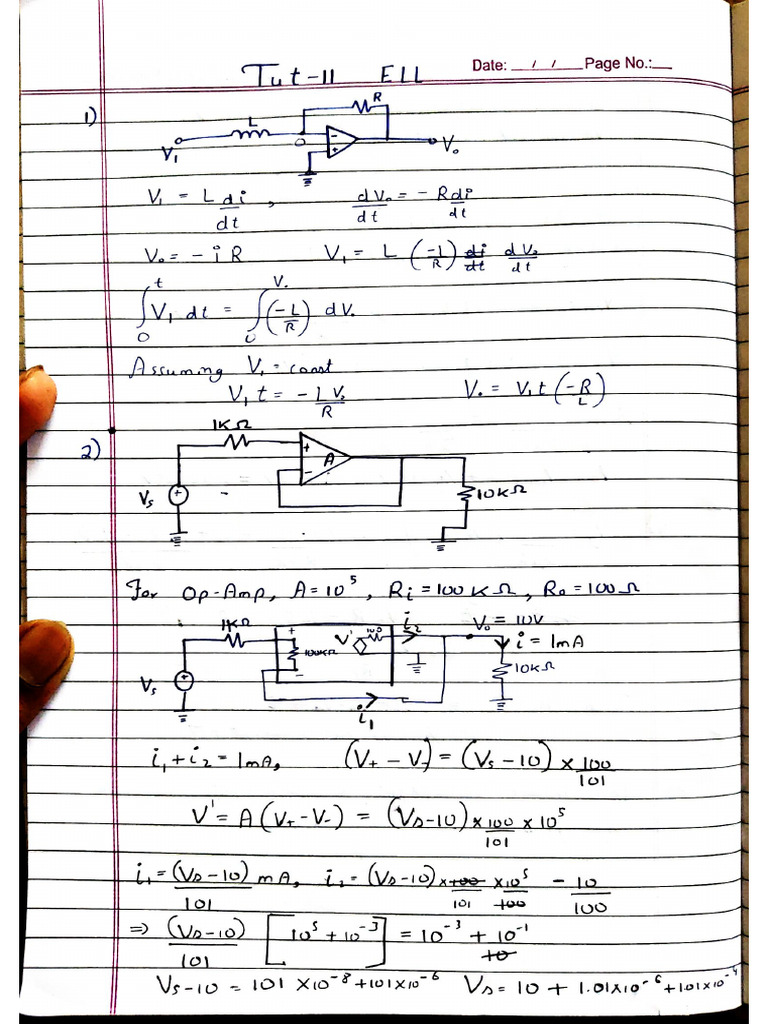 Tut-11 ELL Date: __/__/__ Page No.:__
1)
L R
V₁ 0 - + V₀
V₁ = L di/dt , dV₀/dt = -R di/dt
V₀ = -iR V₁ = L (-1/R) dV₀/dt
∫₀ᵗ V₁ dt = ∫₀^V₀ (-L/R) dV₀
Assuming V₁ = const
V₁ t = -L V₀/R V₀ = V₁ t (-R/L)
2)
1KΩ
+ A -
Vs + - 10KΩ
For Op-Amp, A = 10⁵, Ri = 100KΩ, Ro = 100Ω
1KΩ + 100KΩ - V' 100 i₂ V₀ = 10V
i = 1mA
Vs + 10KΩ
i₁
i₁ + i₂ = 1mA, (V₊ - V₋) = (Vs - 10) × 100/101
V' = A(V₊ - V₋) = (Vs - 10) × 100/101 × 10⁵
i₁ = (Vs - 10)/101 mA, i₂ = (Vs - 10) × 100/101 × 10⁵/100 - 10/100
⇒ (Vs - 10)/101 [10⁵ + 10⁻³] = 10⁻³ + 10⁻¹
Vs - 10 = 101 × 10⁻⁸ + 101 × 10⁻⁶ Vs = 10 + 1.01 × 10⁻⁶ + 1.01 × 10⁻⁴